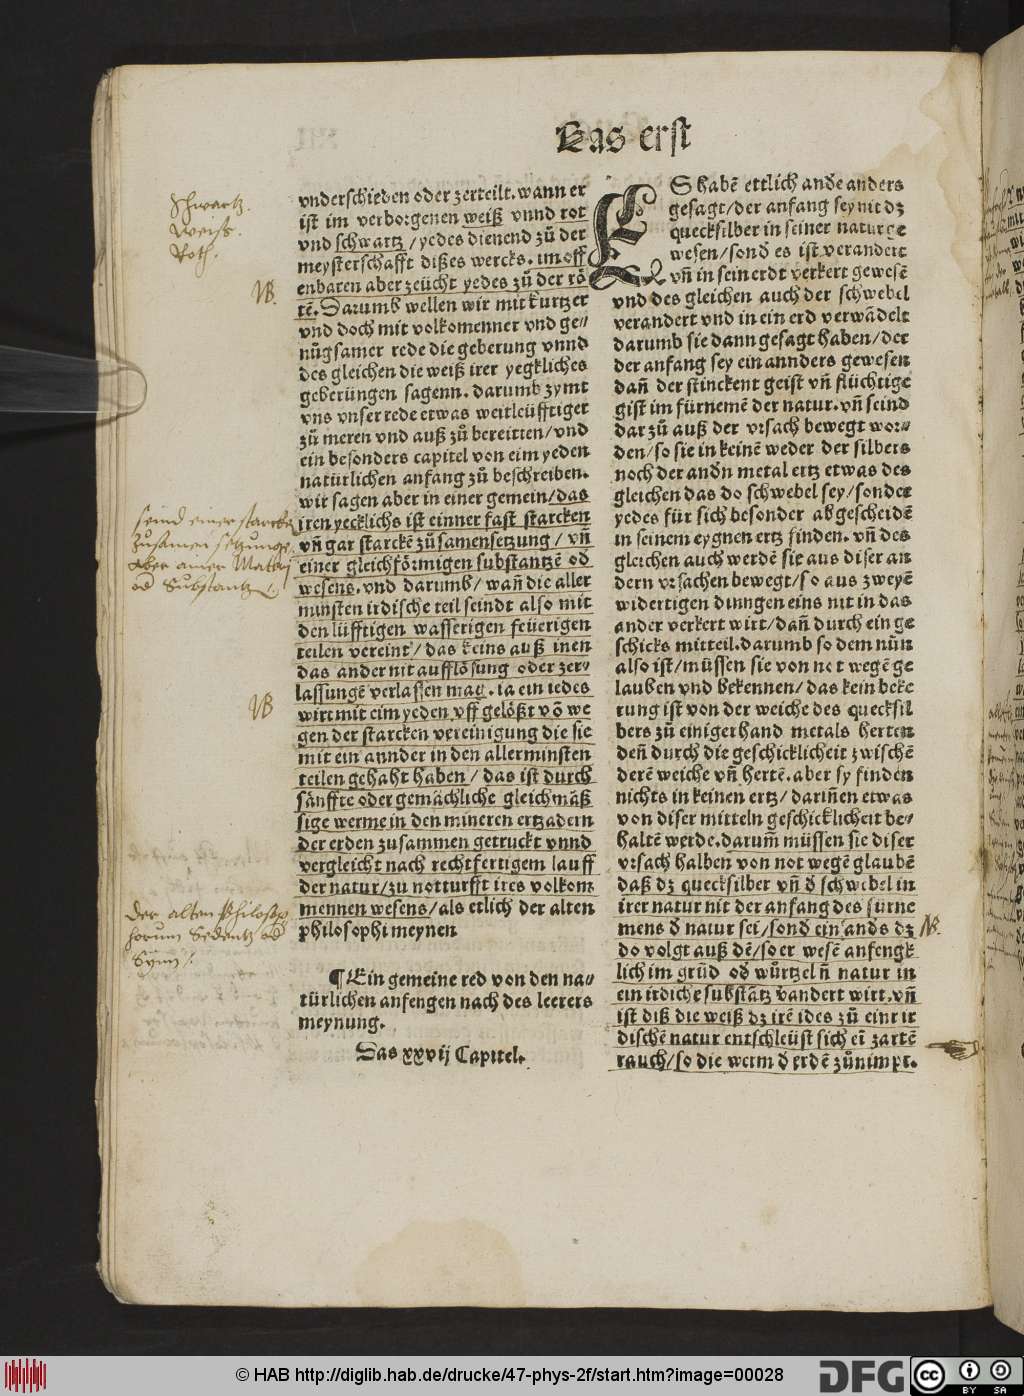 Das erst
vnderschieden oder zerteilt. wann er
ist im verborgenen weiß vnnd rot
vnd schwartz / yedes dienend zů der
meysterschafft dißes wercks. im off
enbaren aber zeücht yedes zů der rö
te. Darumb wellen wir mit kurtzer
vnd doch mit volkomenner vnd ge⸗
nůgsamer rede die geberung vnnd
des gleichen die weiß irer yegkliches
geberüngen sagenn. darumb zymt
vns vnser rede etwas weitleüfftiger
zů meren vnd auß zů bereitten / vnd
ein besonders capitel von eim yeden
natürlichen anfang zů beschreiben.
wir sagen aber in einer gemein / das
iren yecklichs ist einner fast starcken
vñ gar starckē zůsamensetzung / vñ
einer gleichförmigen substantzē od
wesens. vnd darumb / wañ die aller
minsten irdische teil seindt also mit
den lüfftigen wasserigen feüerigen
teilen vereint / das keins auß inen
das ander nit aufflösung oder zer⸗
lassungē verlassen mag. ia ein iedes
wirt mit eim yeden vff gelößt võ we
gen der starcken vereinigung die sie
mit ein annder in den allerminsten
teilen gehabt haben / das ist durch
sänffte oder gemächliche gleichmäß
sige werme in den mineren ertzadern
der erden zusammen getruckt vnnd
vergleicht nach rechtfertigem lauff
der natur / zu notturfft ires volkom
mennen wesens / als etlich der alten
philosophi meynen
¶ Ein gemeine red von den na⸗
türlichen anfengen nach des leerers
meynung.
Das xxvij Capitel.
ES habē ettlich anďe anders
gesagt / der anfang sey nit dz
quecksilber in seiner naturge
wesen / sonď es ist verandert
vñ in sein erdt verkert gewesē
vnd des gleichen auch der schwebel
verandert vnd in ein erd verwādelt
darumb sie dann gesagt haben / der
der anfang sey ein annders gewesen
dañ der stinckent geist vñ flüchtige
gist im fürnemē der natur. vñ seind
dar zů auß der vrsach bewegt wor⸗
den / so sie in keinē weder der silbers
noch der andn metal ertz etwas des
gleichen das do schwebel sey / sonder
yedes für sich besonder abgescheidē
in seinem eygnen ertz finden. vñ des
gleichen auch werdē sie aus diser an
dern vrsachen bewegt / so aus zweyē
widertigen dinngen eins nit in das
ander verkert wirt / dañ durch ein ge
schicks mitteil. darumb so dem nůn
also ist / müssen sie von not wegē ge
lauben vnd bekennen / das kein beke
rung ist von der weiche des quecksil
bers zů einiger hand metals herten
deñ durch die geschicklicheit zwischē
derē weiche vñ hertē. aber sy finden
nichts in keinen ertz / dariñen etwas
von diser mitteln geschicklicheit be⸗
haltē werde. darum̃ müssen sie diser
vrsach halben von not wegē glaubē
daß dz quecksilber vñ ď schwebel in
irer natur nit der anfang des fürne
mens ď natur sei / sonď ein ands dz
do volgt auß dē / so er wesē anfengk
lich im grūd oď wůrtzel ñ natur in
ein irdiche substātz vandert wirt. vñ
ist diß die weiß dz irē ides zů einr ir
dischē natur entschleüst sich eī zartē
rauch / so die werm ď erdē zůnimpt.
Schwartz.
Weiss.
Roth.
NB.
seind einer starcken
zusamensetzunge
aber ainer Matery
od Substantz.
NB
Der alten Philosop
horum
NB.
© HAB http://diglib.hab.de/drucke/47-phys-2f/start.htm?image=00028
DFG
cc
BY SA